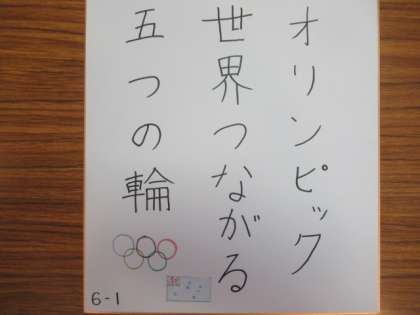 オリンピック
世界つながる
五つの輪
6-1